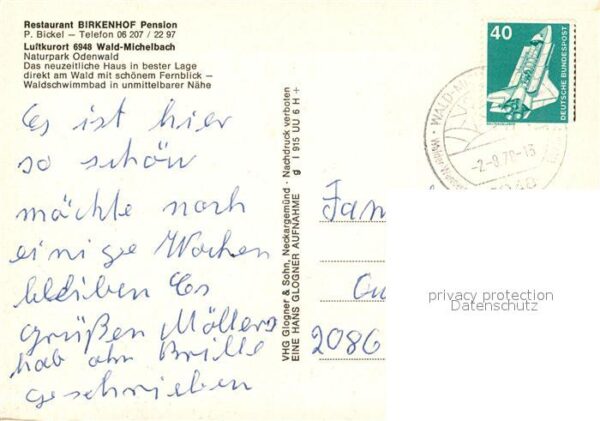 Restaurant BIRKENHOF Pension
P. Bickel – Telefon 06 207 / 22 97
Luftkurort 6948 Wald-Michelbach
Naturpark Odenwald
Das neuzeitliche Haus in bester Lage
direkt am Wald mit schönem Fernblick –
Waldschwimmbad in unmittelbarer Nähe
Es ist hier
so schön
möchte noch
einige Wochen
bleiben Es
grüßen Möllers
hab ohn Brille
geschrieben
VHG Glogner & Sohn, Neckargemünd · Nachdruck verboten
EINE HANS GLOGNER AUFNAHME g I 915 UU 6 H +
40
DEUTSCHE BUNDESPOST
WALD-MI
Fam
2086
privacy protection
Datenschutz